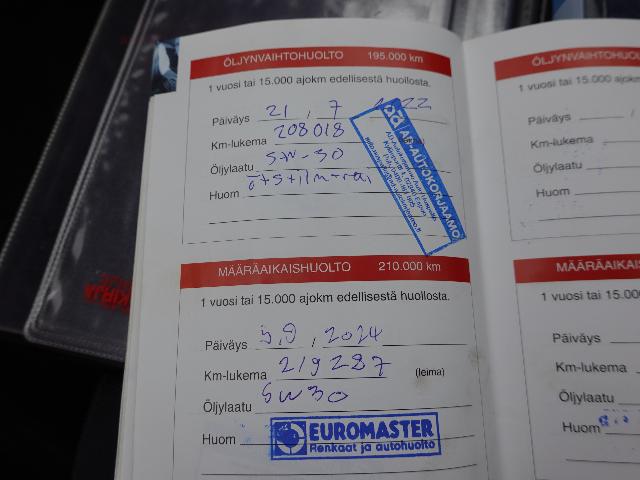 ÖLJYNVAIHTOHUOLTO 195.000 km
1 vuosi tai 15.000 ajokm edellisestä huollosta.
Päiväys 21 , 7 2022
Km-lukema 208018
Öljylaatu 5W-30
Huom
AD AUTOKORJAAMO
MÄÄRÄAIKAISHUOLTO 210.000 km
1 vuosi tai 15.000 ajokm edellisestä huollosta.
Päiväys 5,9 , 2024
Km-lukema 219287 (leima)
Öljylaatu 5W30
Huom
EUROMASTER
Renkaat ja autohuolto
ÖLJYNVAIHTOHUOL
1 vuosi tai 15.000 ajok
Päiväys
Km-lukema
Öljylaatu
Huom
MÄÄRÄAIKAISH
1 vuosi tai 15.000
Päiväys
Km-lukema
Öljylaatu
Huom
KIRJA